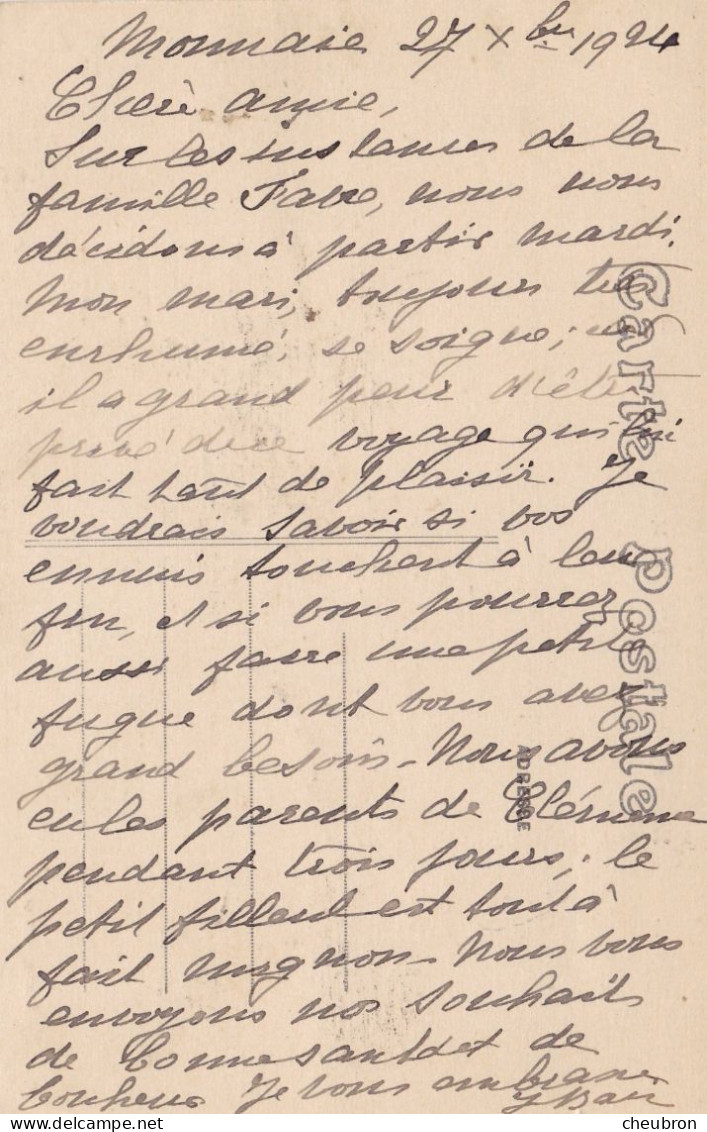 Monnaie 27 Xbre 1924
Chère amie,
Sur les instances de la
famille Favre, nous nous
décidons à partir mardi.
Mon mari, toujours très
enrhumé, se soigne ;
il a grand peur d'être
privé de ce voyage qui lui
fait tant de plaisir. Je
voudrais savoir si vos
ennuis touchent à leur
fin, et si vous pourrez
aussi faire une petite
fugue dont vous avez
grand besoin - Nous avons
eu les parents de Clémence
pendant trois jours ; le
petit filleul est tout à
fait mignon - Nous vous
envoyons nos souhaits
de bonne santé et de
bonheur Je vous embrasse
Carte postale
ADRESSE
www.delcampe.net
cheubron